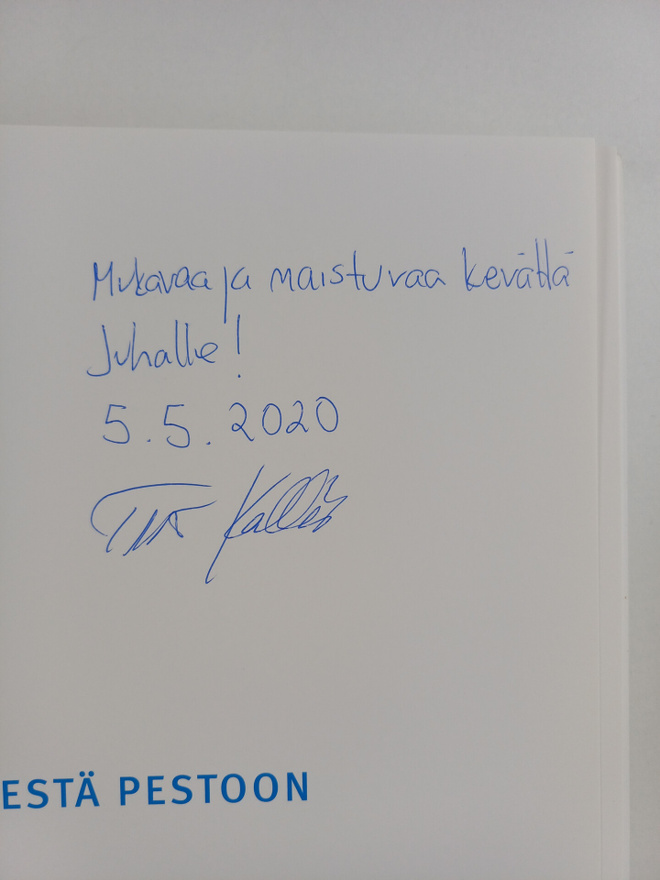 Mukavaa ja maistuvaa kevättä
Juhalle!
5.5.2020
ESTÄ PESTOON